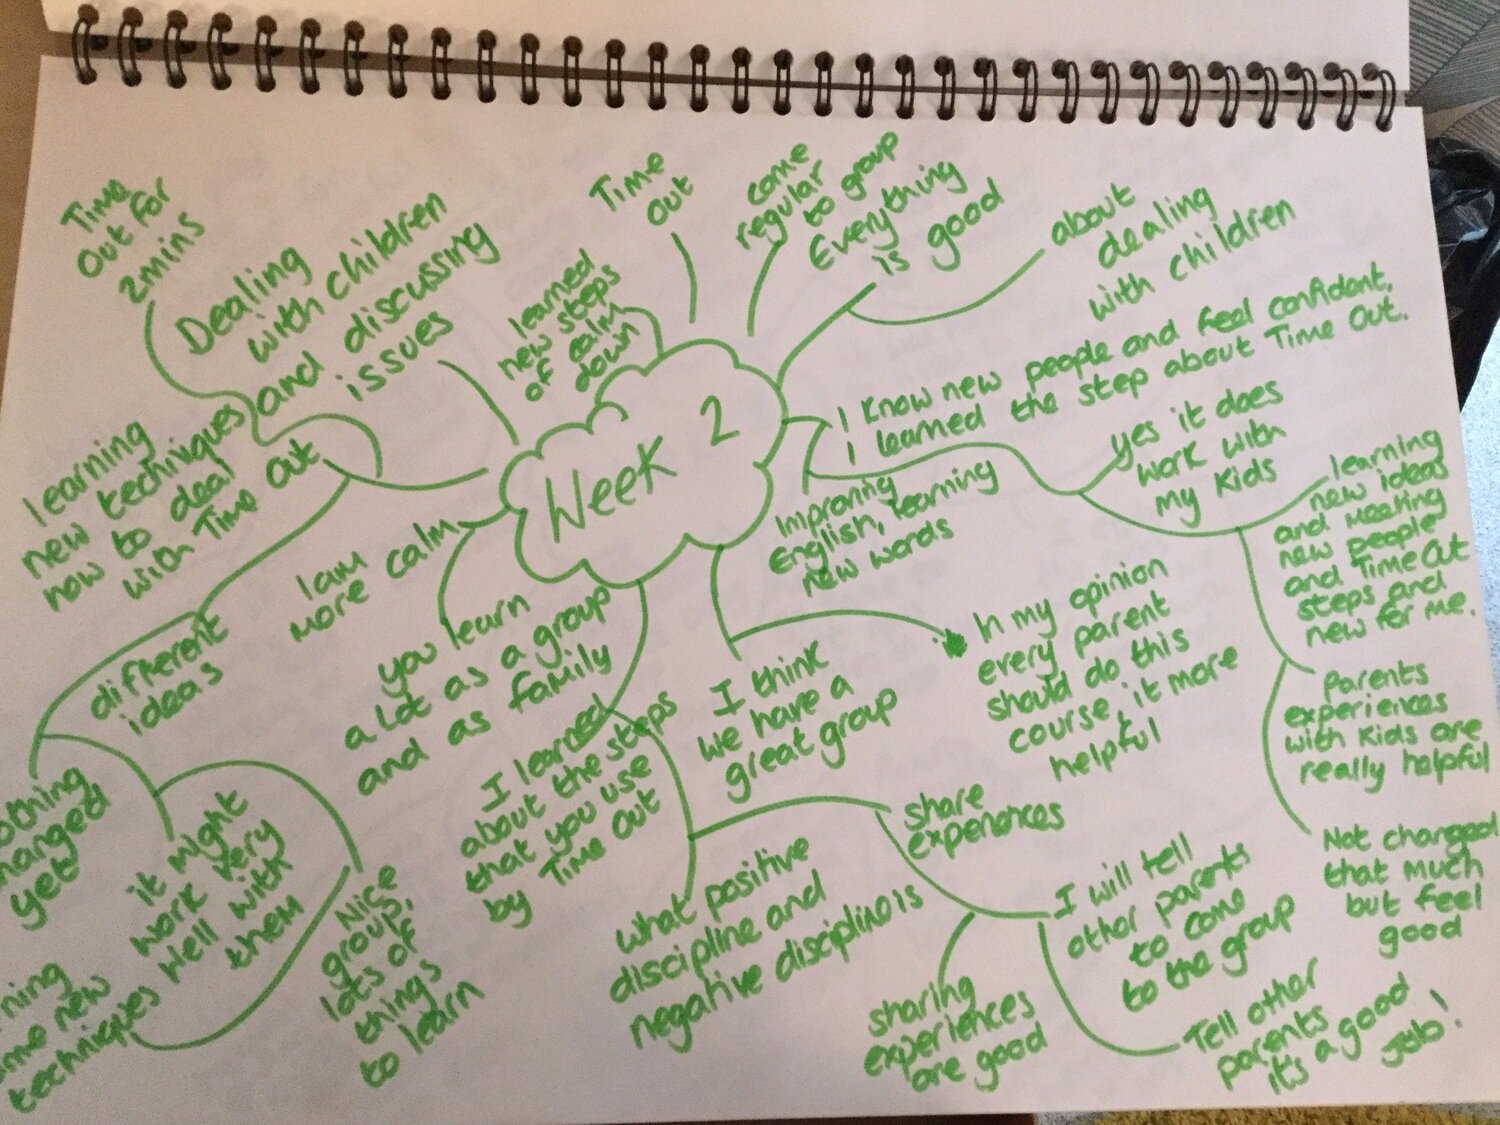 Week 2
Time
Out for
2mins
Dealing
with children
and discussing
issues
learned
new steps
of calm
down
Time
Out
come
regular
to group
Everything
is good
about
dealing
with children
I know new people and feel confident.
I learned the step about Time Out.
yes it does
work with
my kids
learning
new ideas
and meeting
new people
and Time Out
steps and
new for me.
Parents
experiences
with kids are
really helpful
Not changed
that much
but feel
good
Improving
English, learning
new words
In my opinion
every parent
should do this
course, it more
helpful
I think
we have a
great group
share
experiences
I will tell
other parents
to come
to the group
Tell other
parents
it's a good
Job!
sharing
experiences
are good
what positive
discipline and
negative discipline is
I learned
about the steps
that you use
by Time Out
you learn
a lot as a group
and as family
I am
more calm
learning
new techniques
how to deal
with Time Out
different
ideas
yet
it might
work very
well with
them
Nice
group,
lots of
things
to learn
new
techniques